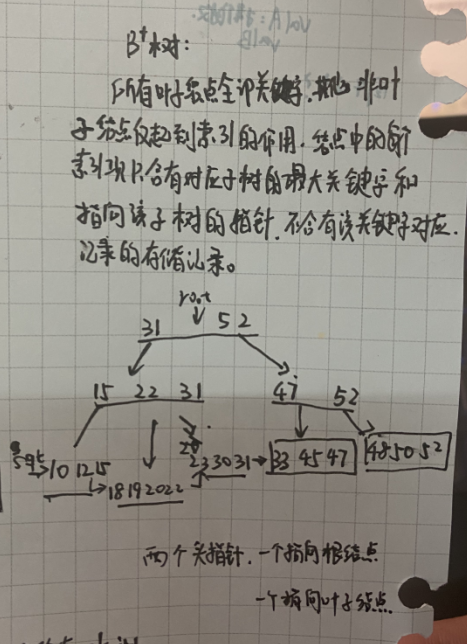 B+树:
所有叶子结点全部关键字. 其他非叶
子结点仅起到索引的作用. 结点中的每个
索引项只含有对应子树的最大关键字和
指向该子树的指针. 不含有该关键字对应
记录的存储记录。
root
31 52
15 22 31
47 52
10 12 15
18 19 20 22
23 30 31
33 45 47
48 50 52
两个头指针. 一个指向根结点
一个指向叶子结点